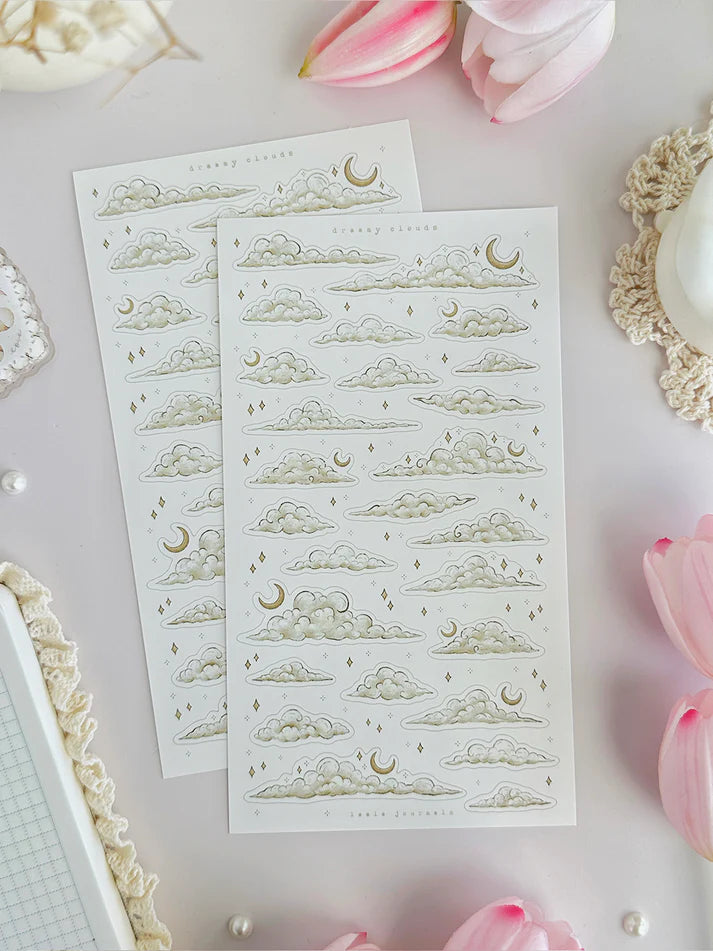 dreamy clouds
dreamy clouds
leele journals